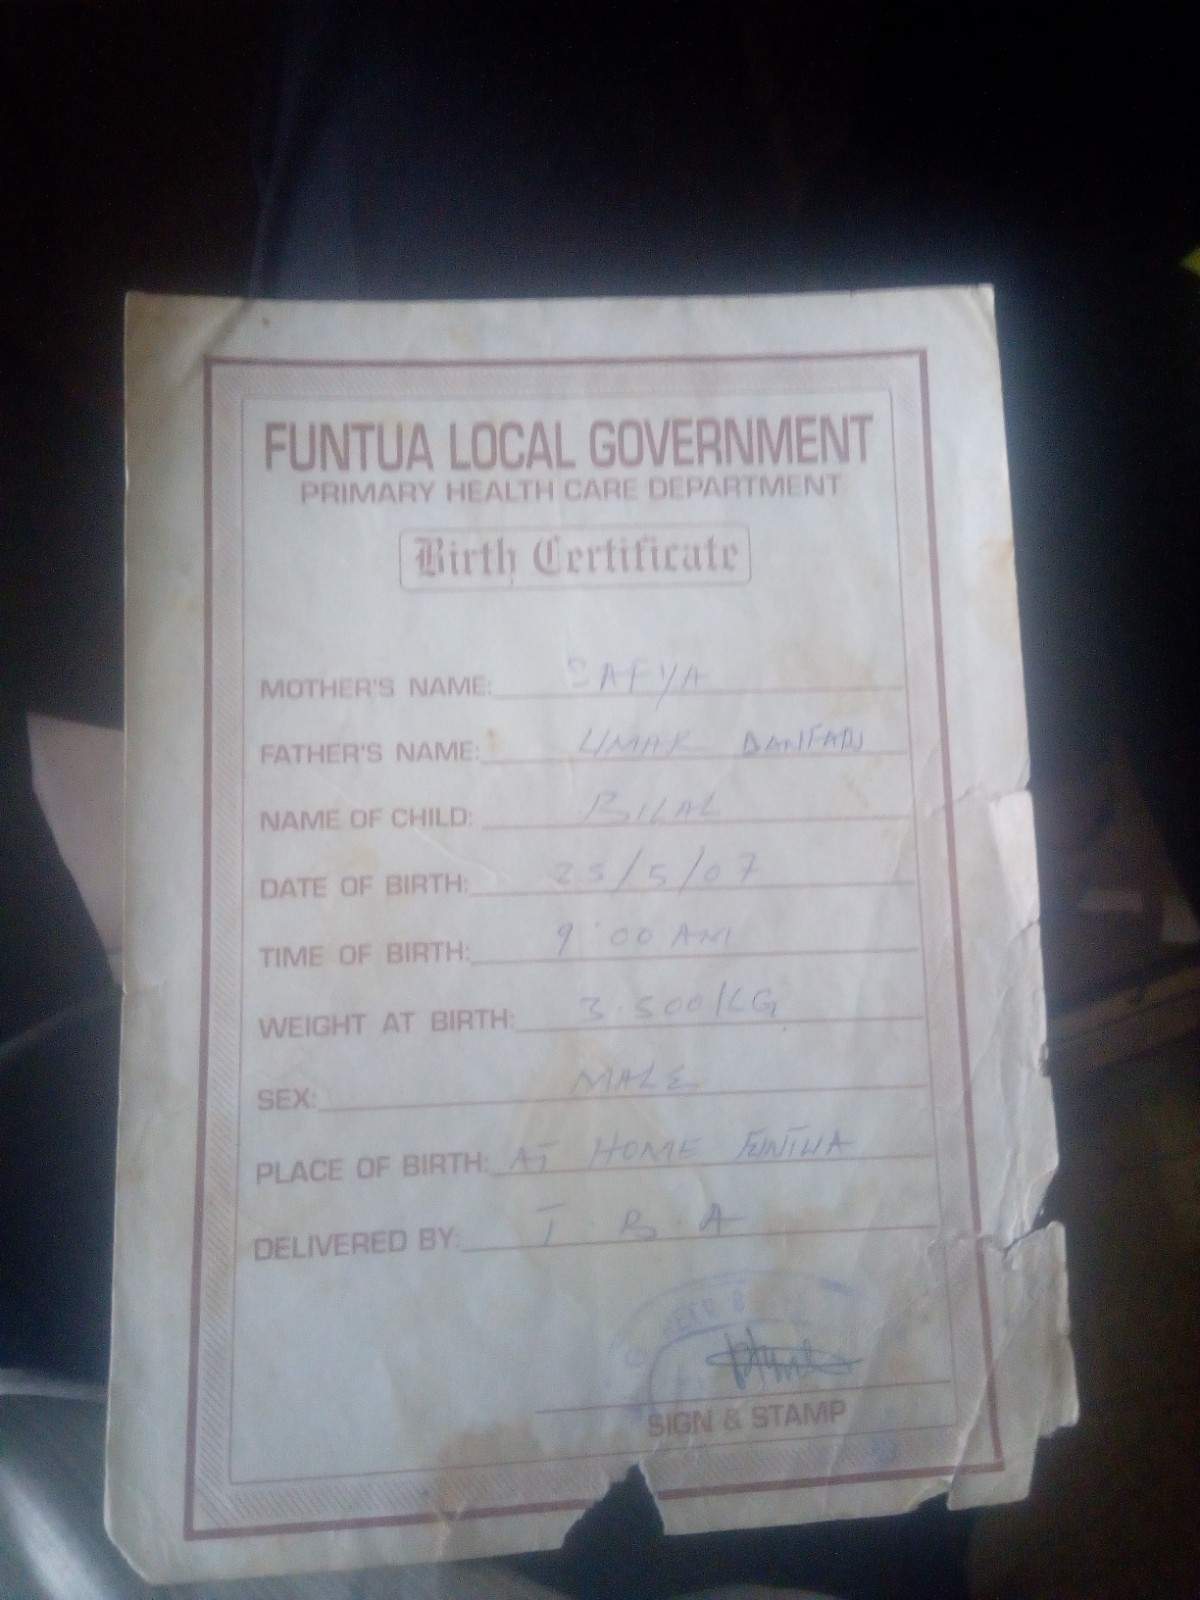 FUNTUA LOCAL GOVERNMENT
PRIMARY HEALTH CARE DEPARTMENT
Birth Certificate
MOTHER'S NAME: SAFYA
FATHER'S NAME: UMAR
NAME OF CHILD: BILAL
DATE OF BIRTH: 25/5/07
TIME OF BIRTH: 9:00 AM
WEIGHT AT BIRTH: 3.500/KG
SEX: MALE
PLACE OF BIRTH: AT HOME FUNTUA
DELIVERED BY: T B A
SIGN & STAMP